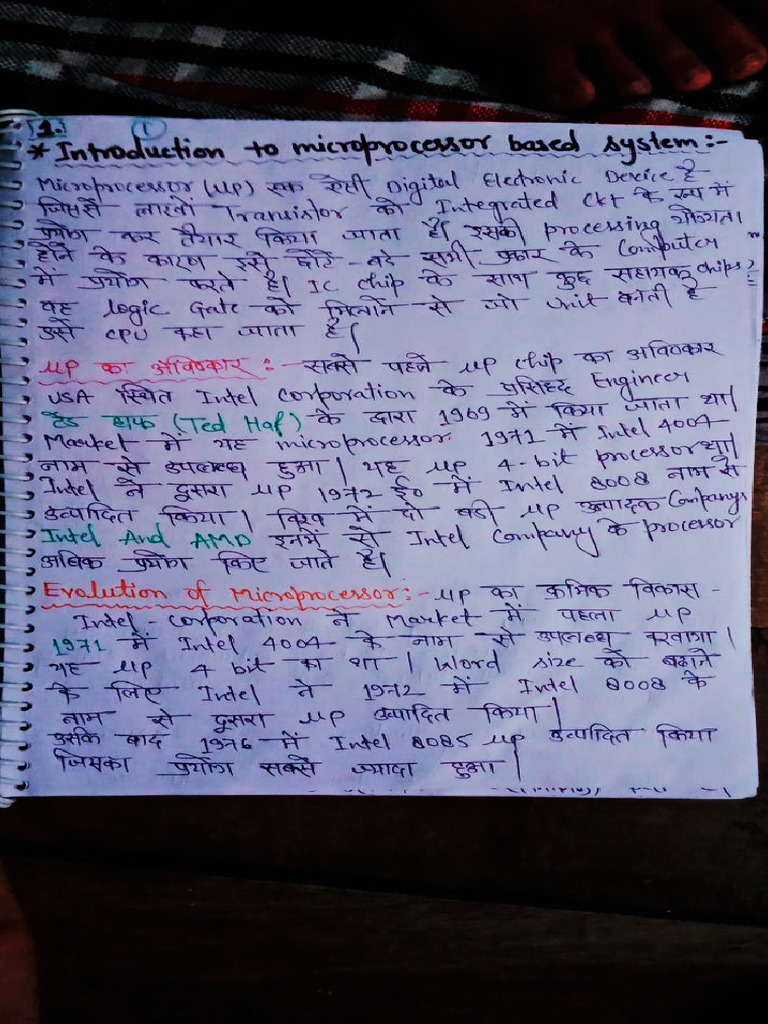 1. (1)
* Introduction to microprocessor based system:-
Microprocessor (μp) एक ऐसी Digital Electronic Device है
जिससे लाखों Transistor को Integrated Ckt के रूप में
प्रयोग कर तैयार किया जाता है। इसकी processing योग्यता
होने के कारण इसे छोटे-बडे सभी प्रकार के Computer
में प्रयोग करते है। IC chip के साथ कुछ सहायक chips,
वह logic Gate को मिलाने से जो unit बनती है
उसे CPU कहा जाता है।
μp का अविष्कार :- सबसे पहले μp chip का अविष्कार
USA स्थित Intel Corporation के प्रसिद्ध Engineer
टेड हाफ (Ted Haf) के द्वारा 1969 में किया जाता था।
Market में यह microprocessor 1971 में Intel 4004
नाम से उपलब्ध हुआ। यह μp 4-bit processor था।
Intel ने दूसरा μp 1972 ई० में Intel 8008 नाम से
उत्पादित किया। विश्व में दो बडी μp उत्पादक Companys
Intel And AMD इनमें से Intel Company के processor
अधिक प्रयोग किए जाते है।
Evolution of Microprocessor:- μp का क्रमिक विकास -
Intel-corporation ने Market में पहला μp
1971 में Intel 4004 के नाम से उपलब्ध करवाया।
यह μp 4 bit का था। Word size को बढाने
के लिए Intel ने 1972 में Intel 8008 के
नाम से दूसरा μp उत्पादित किया।
उसके बाद 1976 में Intel 8085 μp उत्पादित किया
जिसका प्रयोग सबसे ज्यादा हुआ।